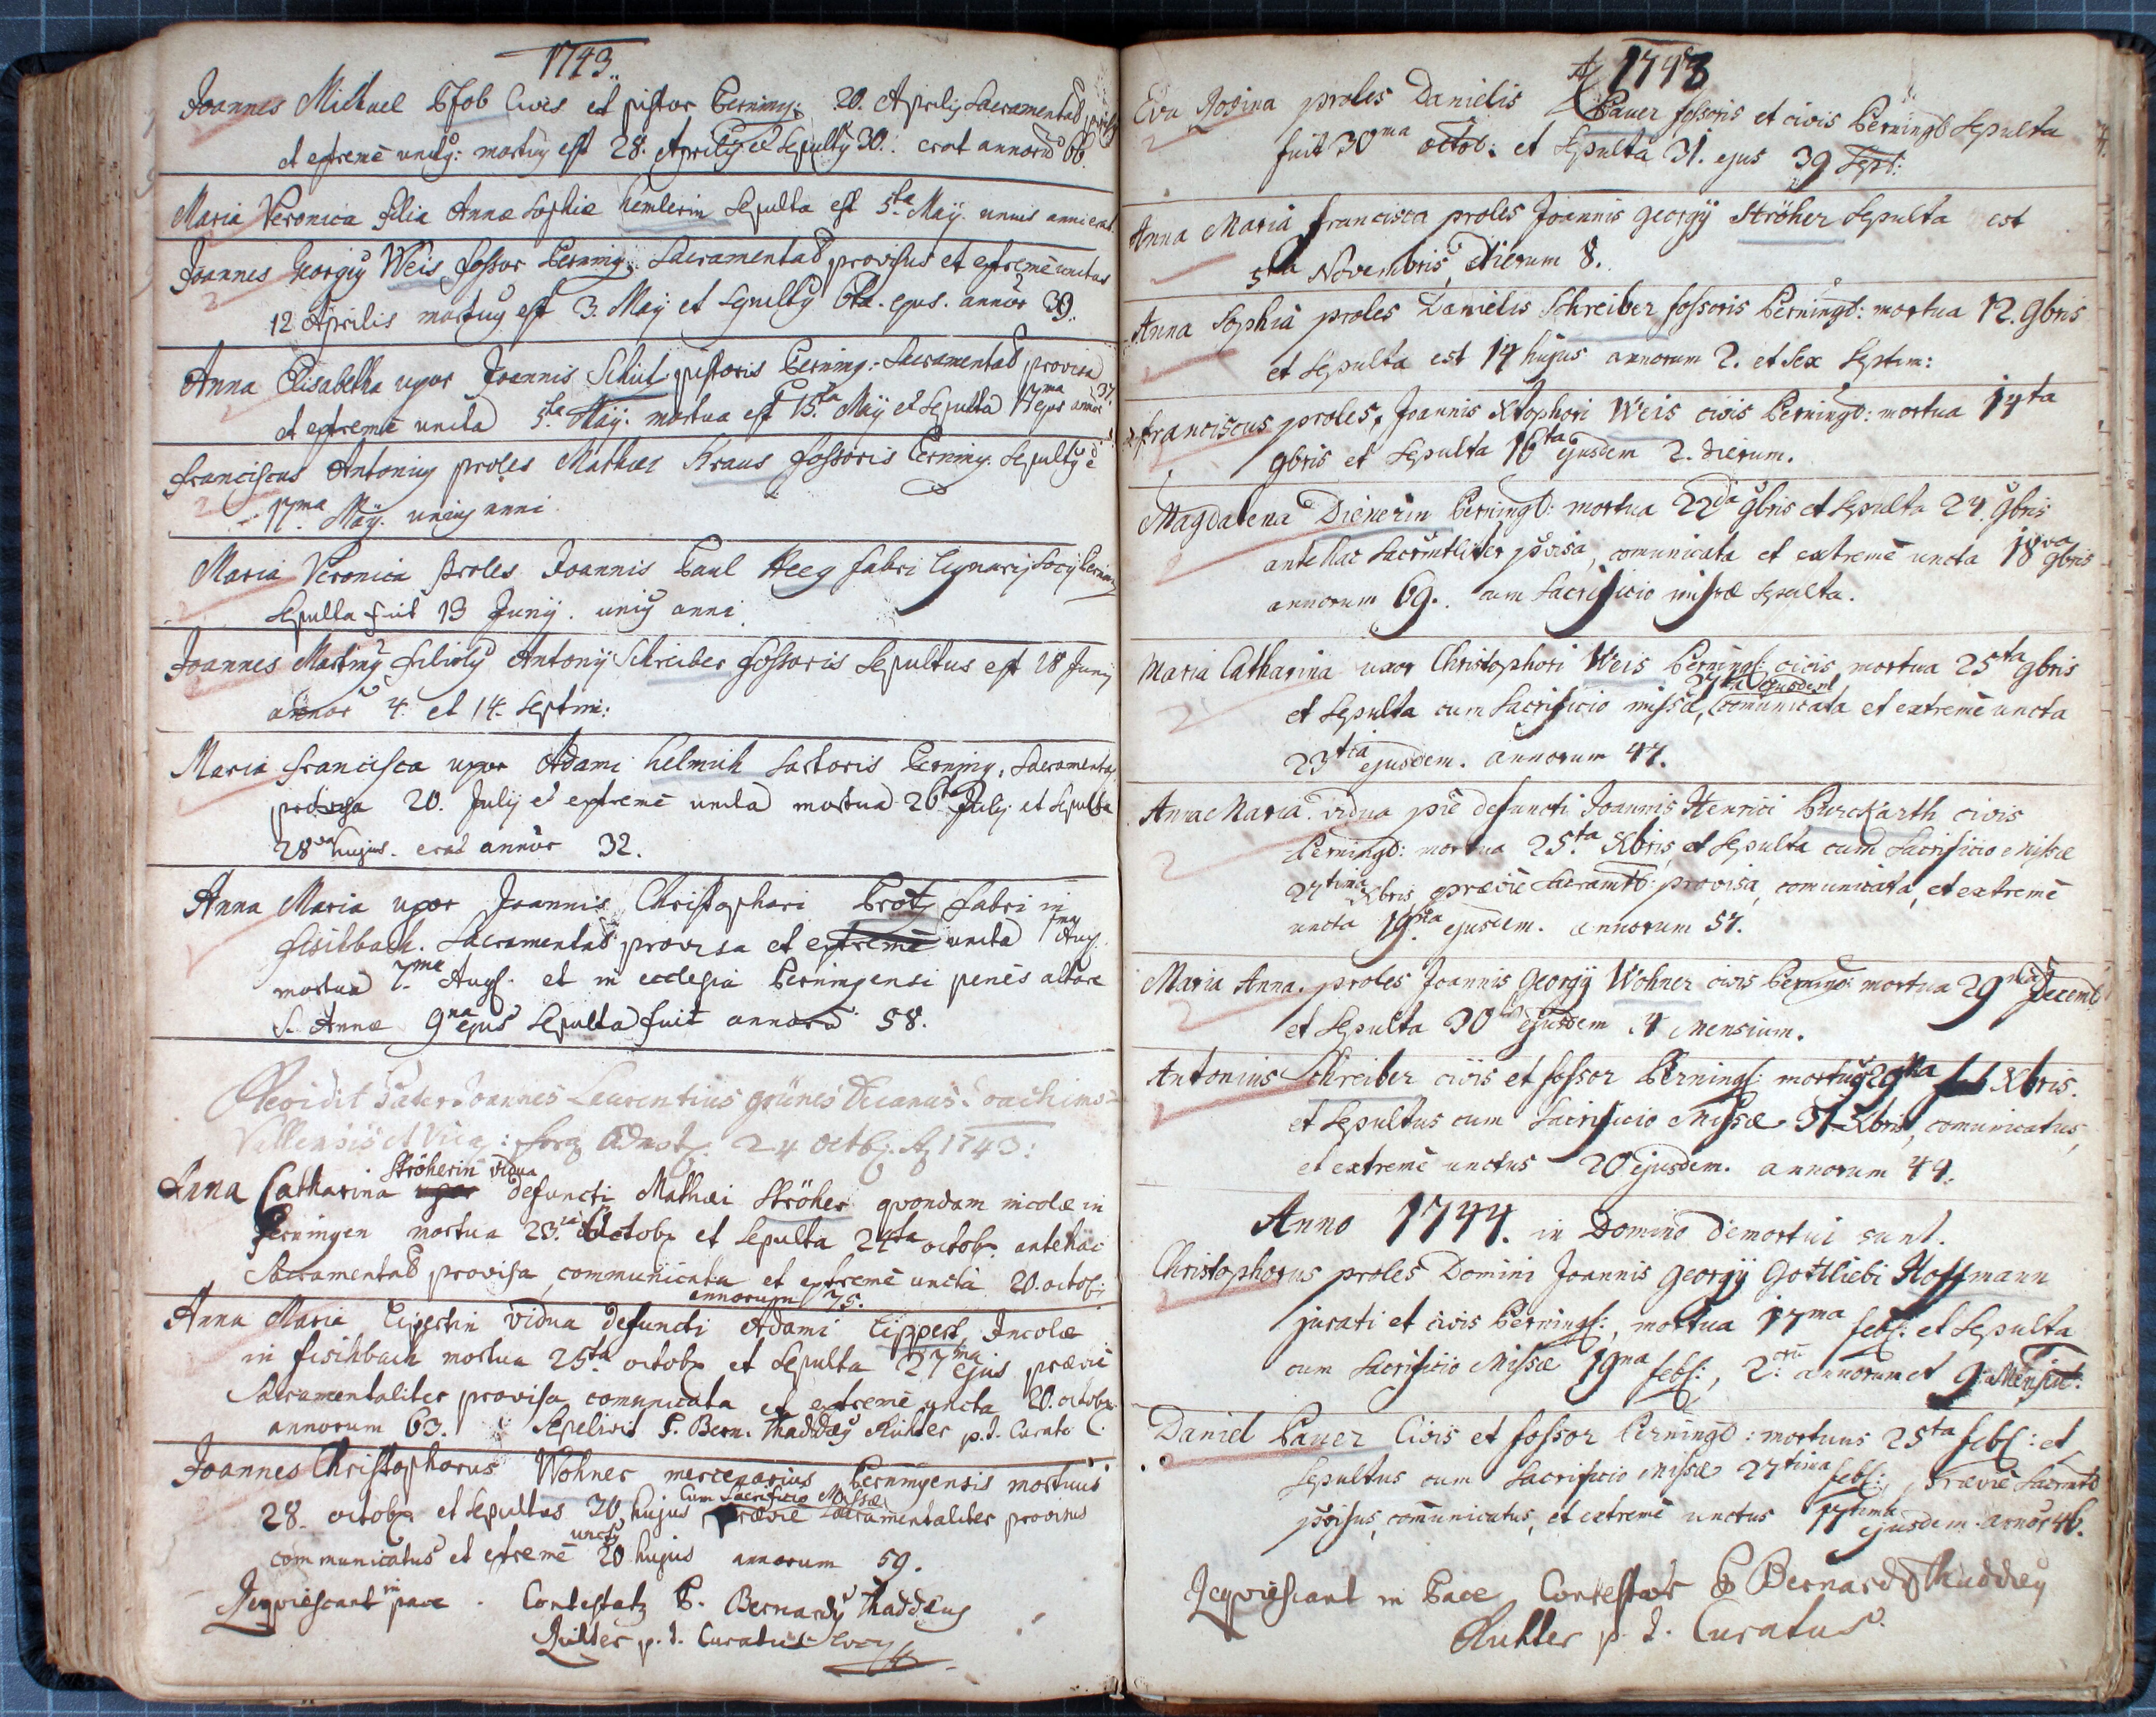 1743.
Joannes Michael Civis et pistor Berning: 20. Aprilis Sacramentad
et extremè unctg: mortug est 28. Aprilis et Sepultg 30. erat annorū 66.
Maria Veronica filia Annæ Sophiæ Hemlerin Sepulta est 5ta Maÿ. unius anni erat.
Joannes Georgig Weis fossor Berning: Sacramentad provisus et extremè unctus
12 Aprilis mortug est 3. Maÿ et Sepultg 6ta ejus. annor 39.
Anna Elisabetha uxor Joannis Schut pistoris Berning: Sacramentad provisa
et extremè uncta 5ta Maÿ. mortua est 15ta Maÿ et Sepulta 17ma ejus annor 37.
Franciscus Antonig proles Mathiæ Kraus fossoris Berning: Sepultg ē
17ma Maÿ. unig anni
Maria Veronica proles Joannis Paul Heeg fabri lignarij
Sepulta fuit 13 Junij. unig anni.
Joannes Marting filiolg Antonÿ Schreiber fossoris Sepultus est 18 Junij
annor 4. et 14. Septm:
Maria Francisca uxor Adami Helmich Sartoris Berning: Sacramentad
provisa 20. Julij et extremè uncta mortua 26ta Julij et Sepulta
28va hujus. erat annor 32.
Anna Maria uxor Joannis Christophori Brotz fabri in
Fisihbach. Sacramentad provisa et extremè uncta 1ma Aug.
mortua 7ma Augs. et in ecclesia Berningensi penès altare
S. Annæ 9na ejus Sepulta fuit annorū 58.
Revidit Pater Joannes Laurentius Grünes Decanus Joachims-
Vallensis et Vica: 24 octb. Aõ 1743:
Ströherin vidua
Anna Catharina uxor defuncti Mathæi Ströher quondam incolæ in
Perningen mortua 23. Octobr et Sepulta 24ta octobr. antehac
Sacramentad provisa, communicata et extremè uncta 20. octob:
annorum 75.
Anna Maria Lipertin vidua defuncti Adami Lippert, Incolæ
in Fisihbach mortua 25ta octobr et Sepulta 27ma ejus, præviè
Sacramentaliter provisa, comunicata et extremè uncta 20. octobr.
annorum 63. Sepelivit P. Bern. Thaddæg Richter p.t. Curatg.
Joannes Christophorus Wohner mercenarius Berningensis mortuus
28. octobr et Sepultus 30 hujus cum Sacrificio Missæ, præviè Sacramentaliter provisus
communicatus et extremè unctg 20 hujus annorum 59.
Reqviescant in pace. Contestatg P. Bernardg Thaddæus
Richter p.t. Curatus
Aõ 1743
Eva Rosina proles Danielis Pauer fossoris et civis Berningd Sepulta
fuit 30ma octob: et Sepulta 31. ejus 39 Sept:
Anna Maria Francisca proles Joannis Georgÿ Ströher Sepulta est
5ta Novembris, dierum 8.
Anna Sophia proles Danielis Schreiber fossoris Berningd: mortua 12. 9bris
et Sepulta est 14 hujus annorum 2. et Sex Septim:
Franciscus proles, Joannis Xtophori Weis civis Berningd: mortua 14ta
9bris et Sepulta 16ta ejusdem 2. dierum.
Magdalena Dienerin Berningd: mortua 22da 9bris et Sepulta 24. 9bris
antehac Sacrmtliter pvisa, comunicata et extremè uncta 18va 9bris
annorum 69. cum Sacrificio missæ Sepulta.
Maria Catharina uxor Christophori Weis Berningd: civis mortua 25ta 9bris
et Sepulta cum Sacrificio missæ, 27ma ejusdem comunicata et extremè uncta
23tia ejusdem. annorum 47.
Anna Maria. vidua piè defuncti Joannis Henrici Burckarth civis
Berningd: mortua 25ta Xbris, et Sepulta cum Sacrificio Missæ
27tima Xbris præviè Sacramtb: provisa, comunicata, et extremè
uncta 19na ejusdem. annorum 57.
Maria Anna. proles Joannis Georgÿ Wohner civis Berning: mortua 29na Decemb
et Sepulta 30 ejusdem 4 Mensium.
Antonius Schreiber civis et fossor Bernings: mortug 29na Xbris.
et Sepultus cum Sacrificio Missæ 31 Xbris, comunicatus,
et extremè unctus 20 ejusdem. annorum 44.
Anno 1744. in Domino demortui sunt.
Christophorus proles Domini Joannis Georgÿ Gottliebi Hoffmann
jurati et civis Bernings:, mortua 17ma febr: et Sepulta
cum Sacrificio Missæ 19na febr:, 2. annorum et 9. Mensiū:
Daniel Pauer Civis et fossor Berningd: mortuus 25ta febr: et
Sepultus cum Sacrificio missæ 27tima febr: præviè Sacrmtb
pvisus, comunicatus, et extremè unctus 17tima ejusdem. annor 46.
Reqviescant in Pace Contestor P Bernardg Thaddæg
Richter p.t. Curatus.